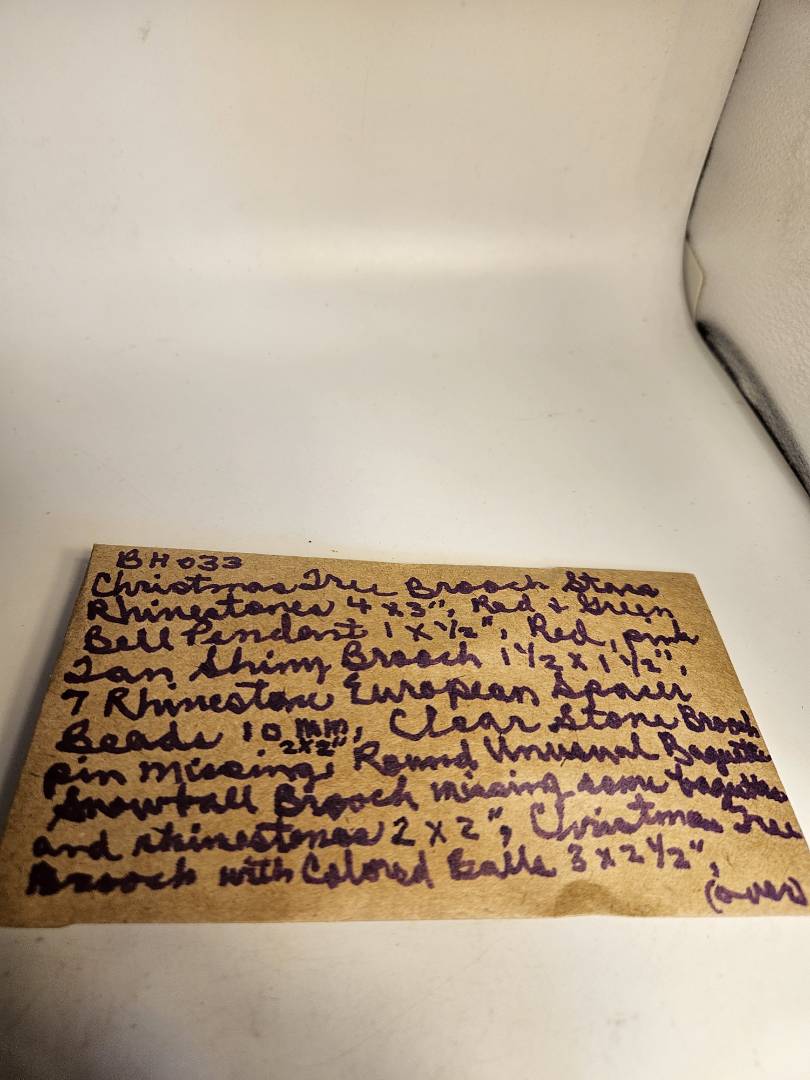 BH033
Christmas Tree Brooch Stars
Rhinestones 4 x 3", Red & Green
Bell Pendant 1 x 1/2", Red, pink
Tan Shiny Brooch 1 1/2 x 1 1/2",
7 Rhinestone European Spacer
Beads 10 mm, Clear Stone Brooch
2x2"
pin missing, Round Unusual Bagette
Snowball Brooch missing some bagettes
and rhinestones 2 x 2", Christmas Tree
Brooch with Colored Balls 3 x 2 1/2",
(over)